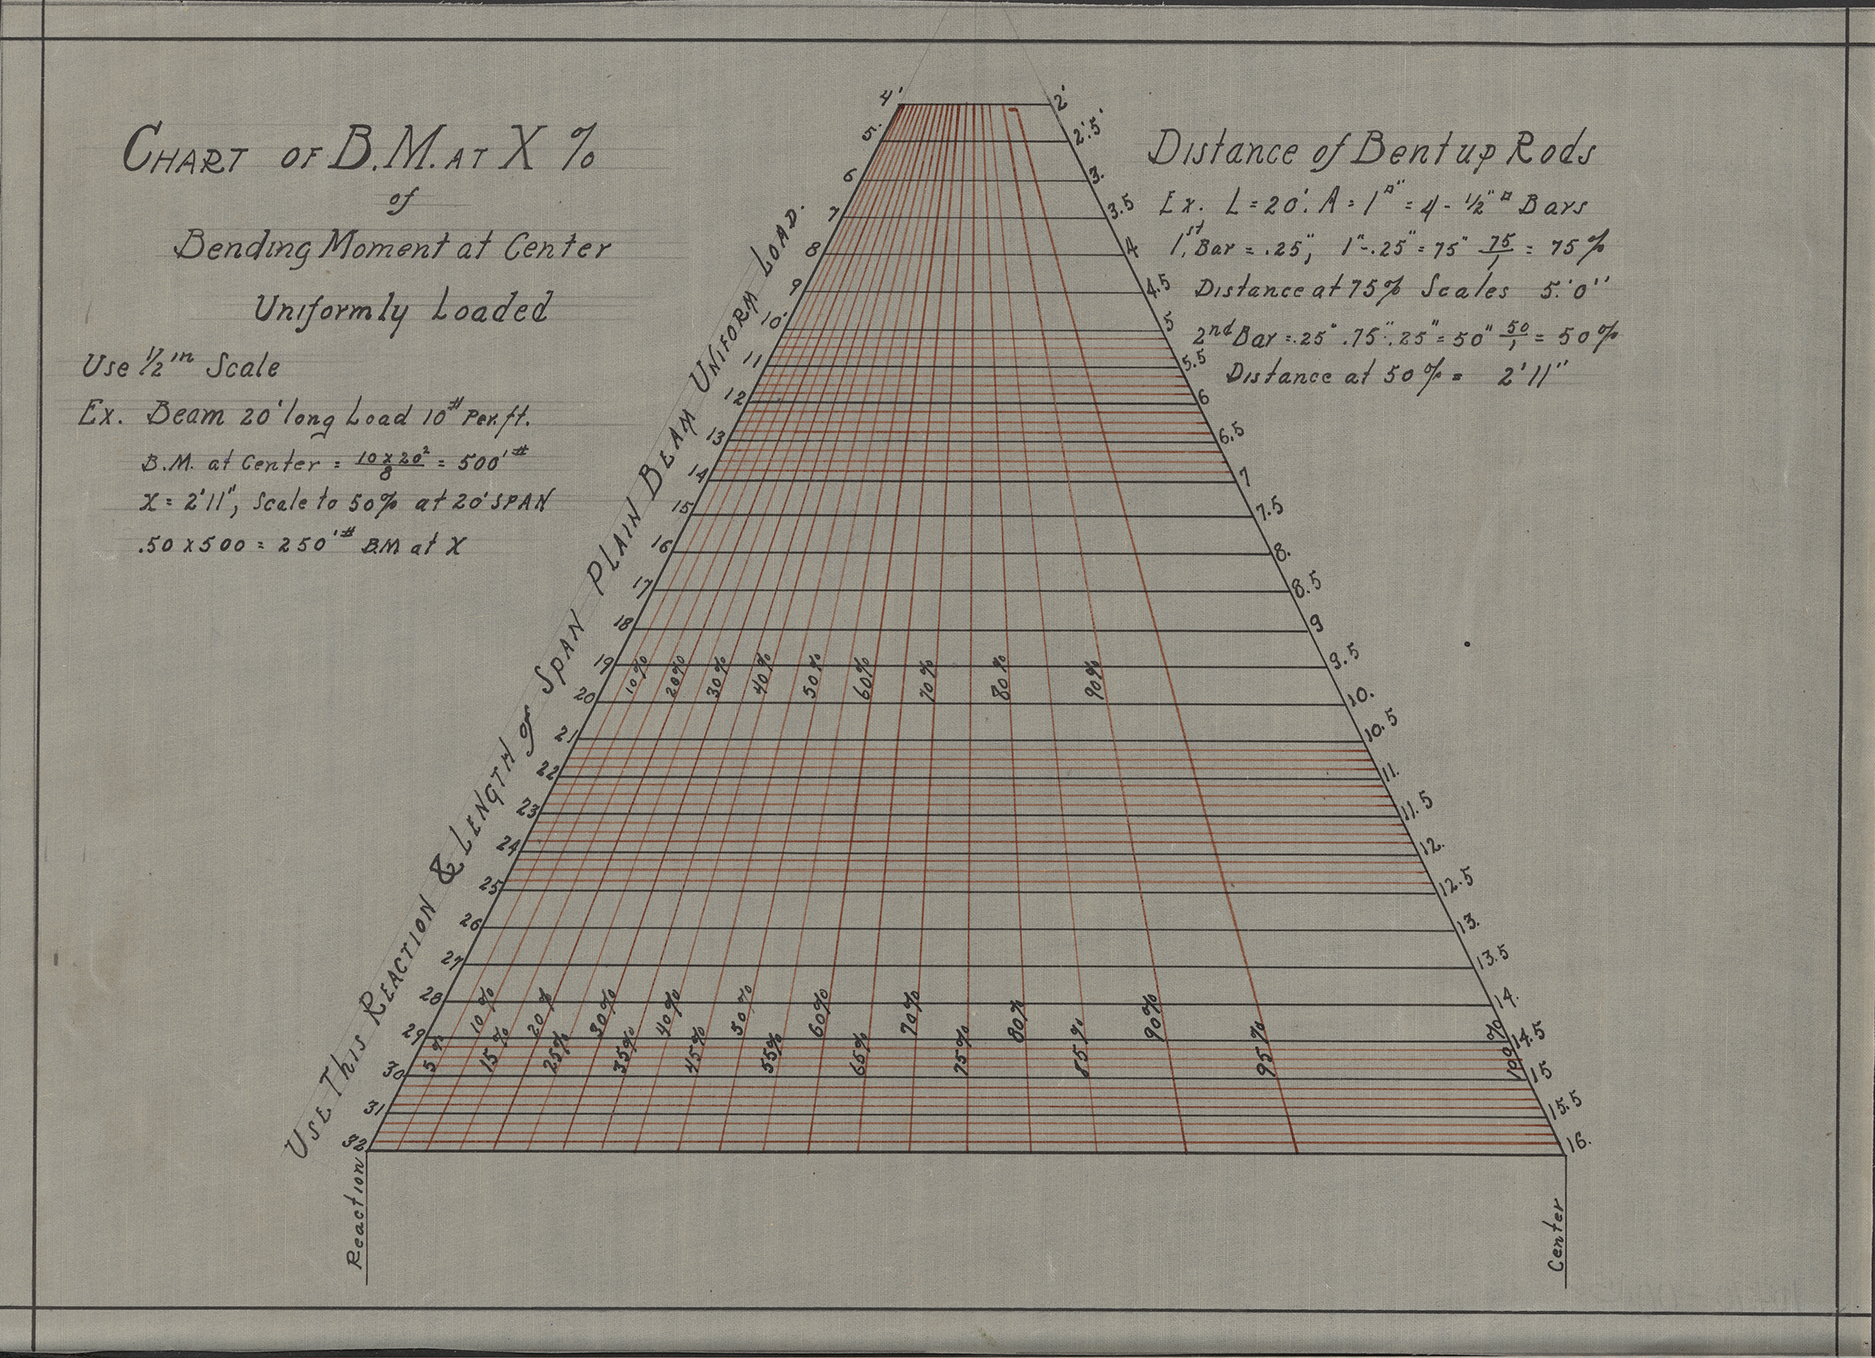 CHART OF B.M. AT X %
of
Bending Moment at Center
Uniformly Loaded
Use 1/2 in Scale
Ex. Beam 20' long Load 10# Per ft.
B.M. at Center = 10 x 20²/8 = 500'#
X = 2'11", Scale to 50% at 20' SPAN
.50 x 500 = 250'# B.M at X
Distance of Bent up Rods
Ex. L = 20'. A = 1□" = 4 - 1/2"□ Bars
1st. Bar = .25", 1"-.25" = 75" 75/1 = 75%
Distance at 75% Scales 5'.0"
2nd Bar = .25" .75".25" = 50" 50/1 = 50%
Distance at 50% = 2'11"
USE THIS REACTION & LENGTH of SPAN PLAIN BEAM UNIFORM LOAD.
4' 2'
5. 2'.5'
6 3.
7 3.5
8 4
9 4.5
10' 5
11 5.5
12 6
13 6.5
14 7
15 7.5
16 8.
17 8.5
18 9
19 9.5
10% 20% 30% 40% 50% 60% 70% 80% 90%
20 10.
21 10.5
22 11.
23 11.5
24 12.
25 12.5
26 13.
27 13.5
28 14.
10% 20% 30% 40% 50% 60% 70% 80% 90%
29 14.5
5% 15% 25% 35% 45% 55% 65% 75% 85% 95% 100%
30 15
31 15.5
32 16.
Reaction
Center